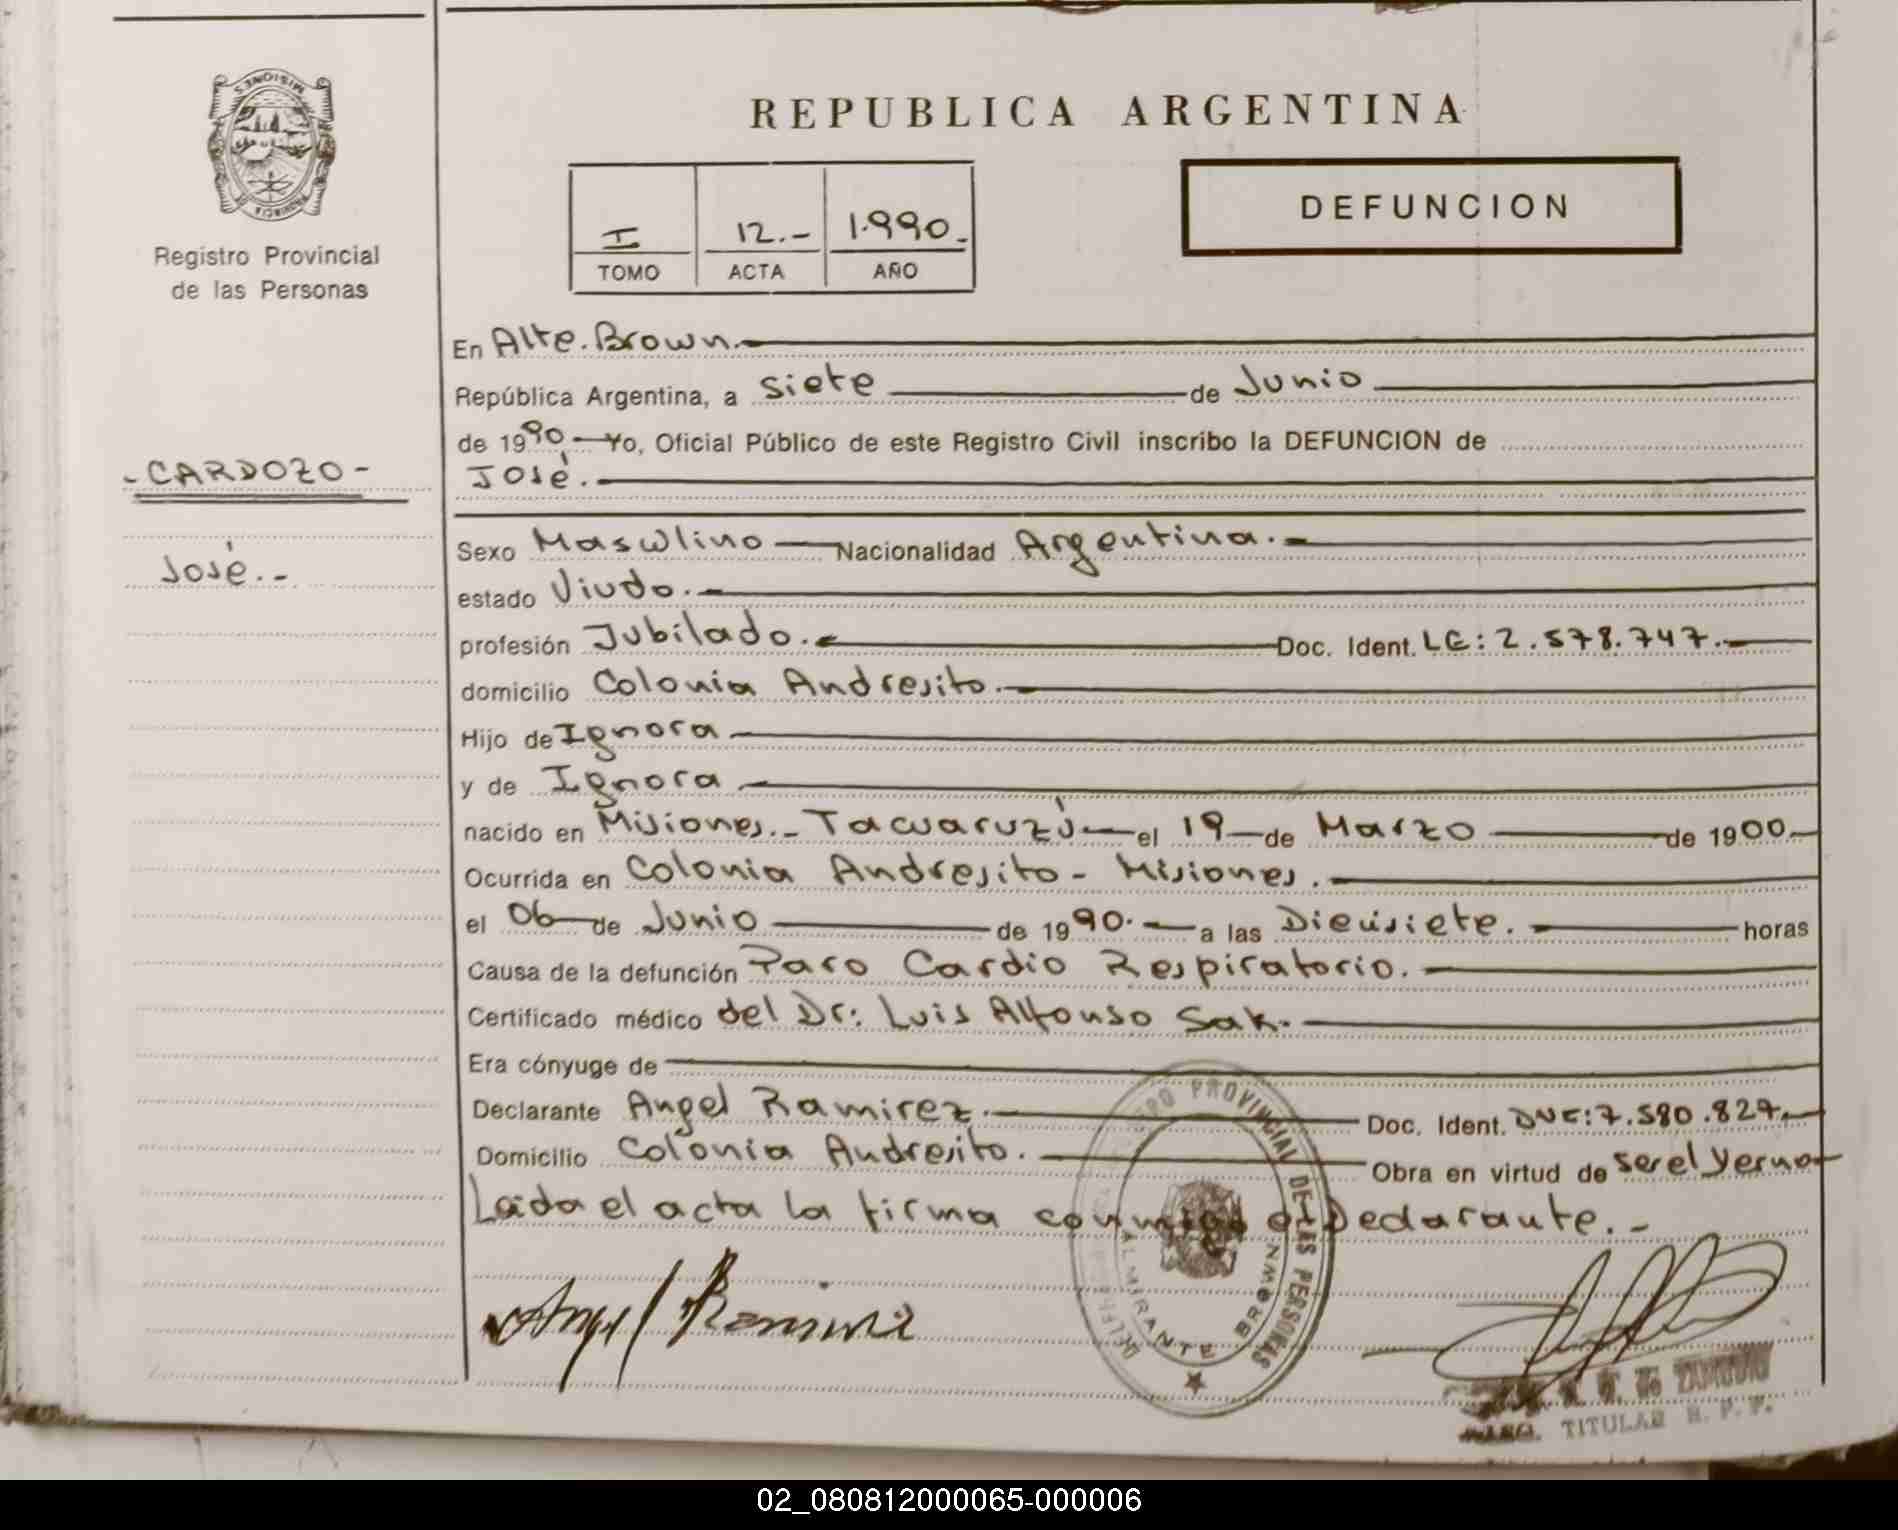 MISIONES
PROVINCIA
Registro Provincial
de las Personas
- CARDOZO -
José.-
REPUBLICA ARGENTINA
I 12.- 1.990.
TOMO ACTA AÑO
DEFUNCION
En Alte. Brown.
República Argentina, a siete de Junio
de 1990 Yo, Oficial Público de este Registro Civil inscribo la DEFUNCION de
José.
Sexo Masculino Nacionalidad Argentina.
estado Viudo.
profesión Jubilado. Doc. Ident. LE: 2.578.747.
domicilio Colonia Andresito.
Hijo de Ignora
y de Ignora
nacido en Misiones.- Tacuaruzú el 19 de Marzo de 1900.
Ocurrida en Colonia Andresito - Misiones.
el 06 de Junio de 1990. a las Diecisiete. horas
Causa de la defunción Paro Cardio Respiratorio.
Certificado médico del Dr: Luis Alfonso Sak.
Era cónyuge de
Declarante Angel Ramirez. Doc. Ident. DNE: 7.580.827.
Domicilio Colonia Andresito. Obra en virtud de ser el yerno
Leida el acta la firma conmigo el Declarante.-
PROVINCIAL DE LAS PERSONAS
ALMIRANTE BROWN
Angel Ramirez
TITULAR R. P. P.
02_080812000065-000006